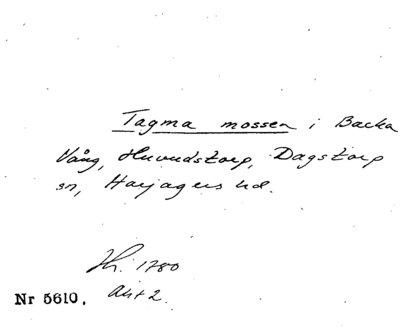 Tagma mossen i Backa
Vång, Huvudstorp, Dagstorp
sn, Harjagers hd.
Hr. 1780
Akt 2.
Nr 5610.